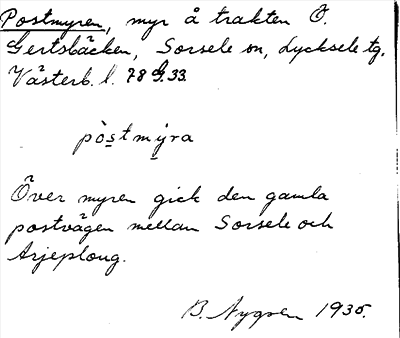 Postmyren, myr å trakten Ö.
Gertsbäcken, Sorsele sn, Lycksele tg.
Västerb. l. 78 G. 33.
pòstmýra
Över myren gick den gamla
postvägen mellan Sorsele och
Arjeploug.
B. Nygren 1935.